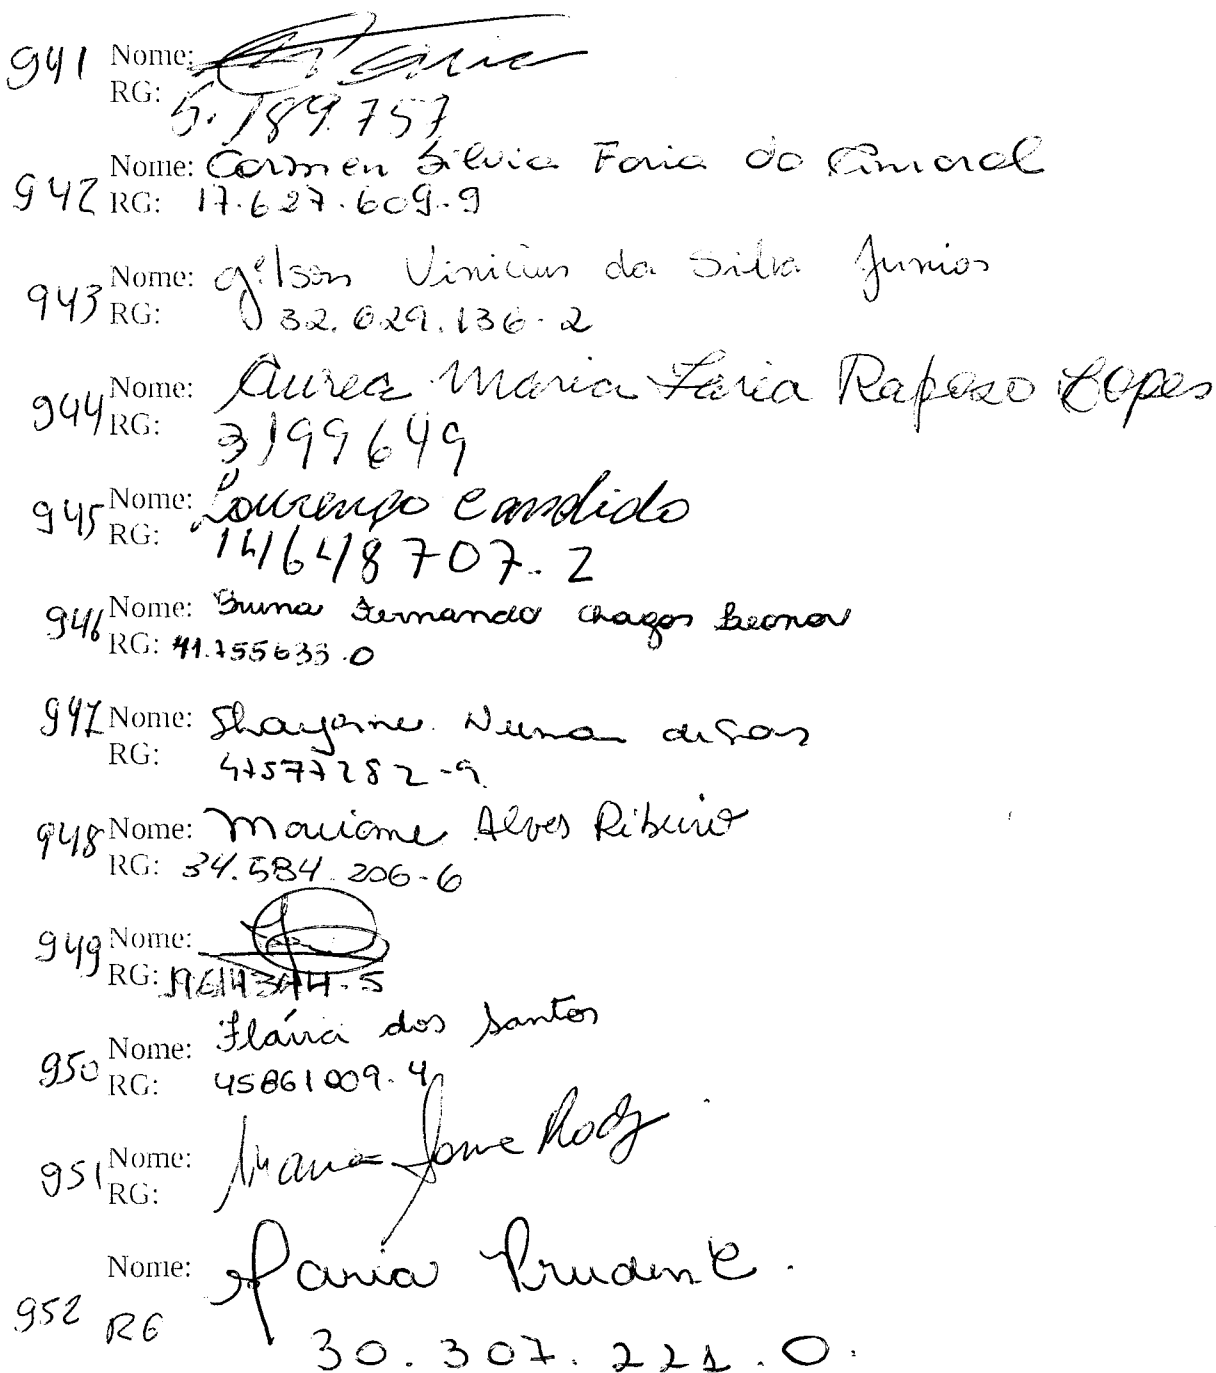 941 Nome: Faria
RG: 5.189.757
Nome: Carmen Silvia Faria do Amaral
942 RG: 17.627.609-9
Nome: Gilson Vinicius da Silva Junior
943 RG: 32.029.136-2
Nome: Aurea Maria Faria Raposo Lopes
944 RG: 3199649
945 Nome: Lourenço Candido
RG: 14648707-2
946 Nome: Bruna Fernanda Chagas Leonor
RG: 41.755633.0
947 Nome: Nunes
RG: 47577282-9
948 Nome: Mariane Alves Ribeiro
RG: 34.584.206-6
949 Nome:
RG:
Nome: Flávia dos Santos
950 RG: 45861009.4
951 Nome: Maria Rodz
RG:
Nome: Maria Prudente.
952 RG 30.307.221.0.